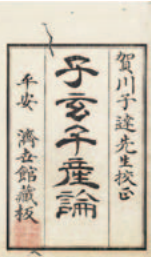 賀川子達先生校正
子玄子産論
平安 濟世館藏板